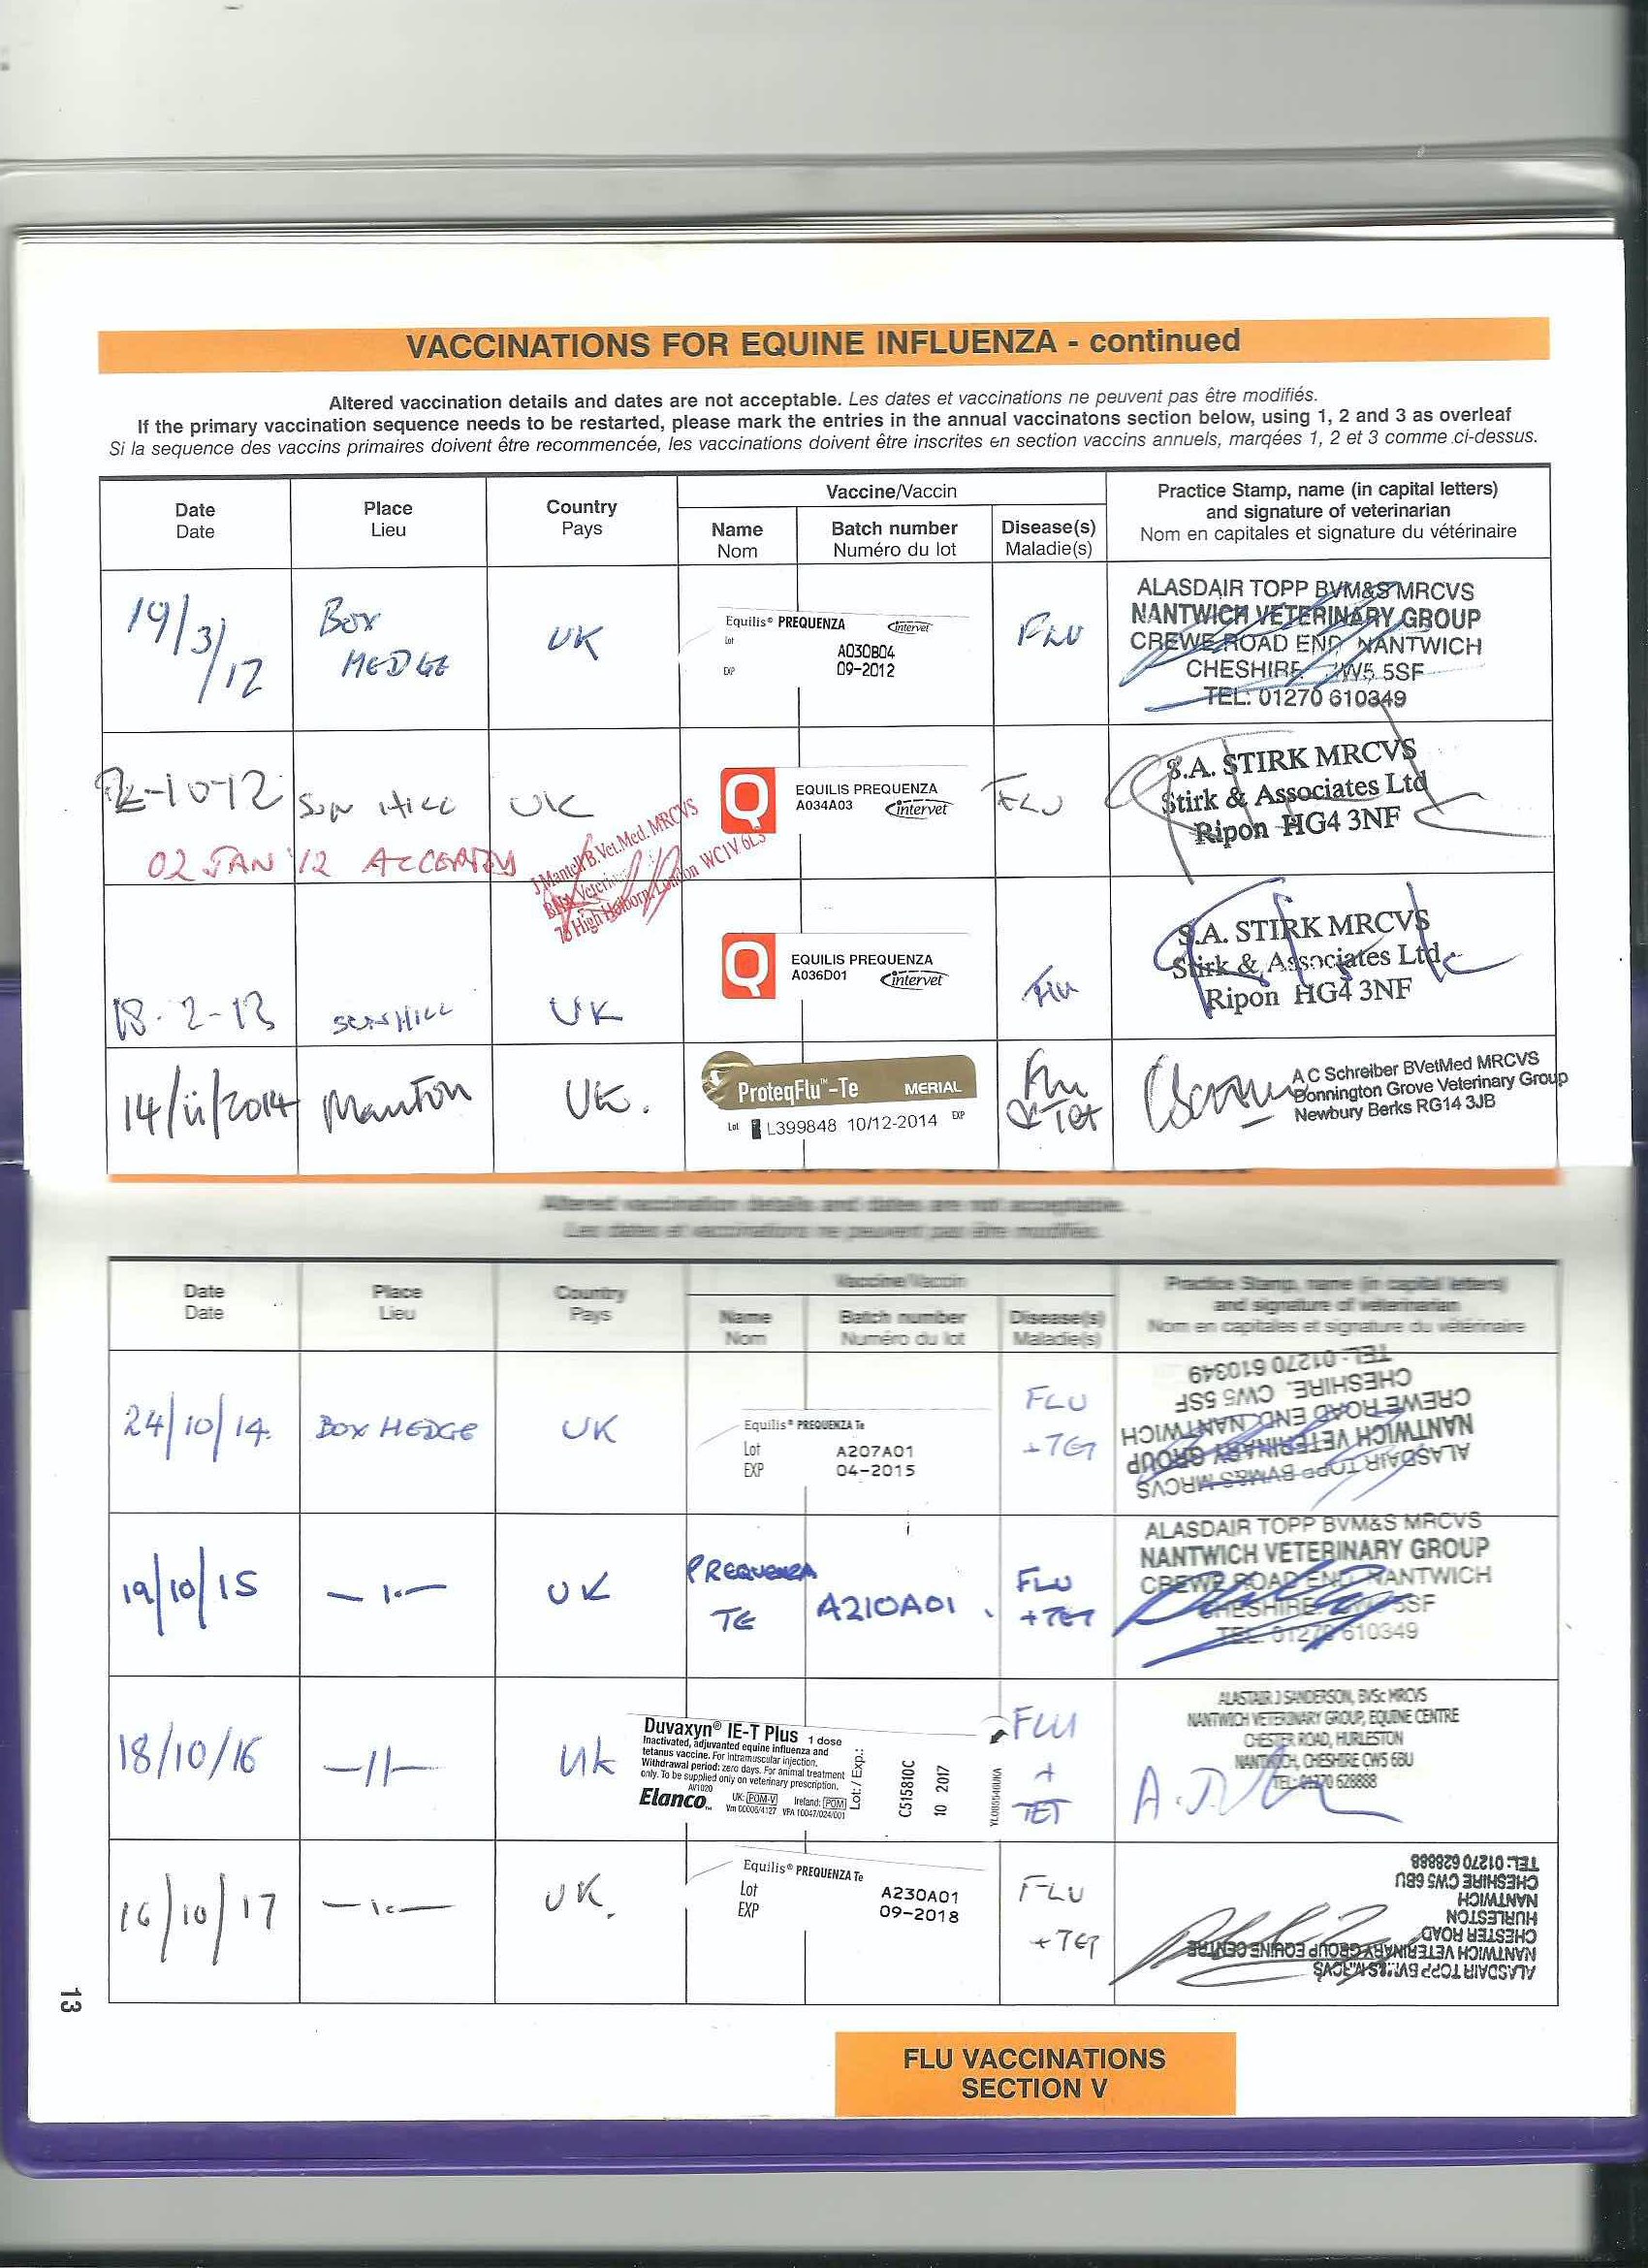 VACCINATIONS FOR EQUINE INFLUENZA - continued
Altered vaccination details and dates are not acceptable. Les dates et vaccinations ne peuvent pas être modifiés.
If the primary vaccination sequence needs to be restarted, please mark the entries in the annual vaccinatons section below, using 1, 2 and 3 as overleaf
Si la sequence des vaccins primaires doivent être recommencée, les vaccinations doivent être inscrites en section vaccins annuels, marqées 1, 2 et 3 comme ci-dessus.
Date
Date
Place
Lieu
Country
Pays
Vaccine/Vaccin
Name
Nom
Batch number
Numéro du lot
Disease(s)
Maladie(s)
Practice Stamp, name (in capital letters)
and signature of veterinarian
Nom en capitales et signature du vétérinaire
19/3/12
Box
HEDGE
UK
Equilis® PREQUENZA Intervet
Lot A030B04
EXP 09-2012
FLU
ALASDAIR TOPP BVM&S MRCVS
NANTWICH VETERINARY GROUP
CREWE ROAD END, NANTWICH
CHESHIRE CW5 5SF
TEL: 01270 610349
2-10-12
SUN HILL
UK
Q
EQUILIS PREQUENZA
A034A03 Intervet
FLU
S.A. STIRK MRCVS
Stirk & Associates Ltd
Ripon HG4 3NF
02 JAN '12
J Mantell B.Vet.Med. MRCVS
75 High Holborn, London WC1V 6LS
18-2-13
SUNHILL
UK
Q
EQUILIS PREQUENZA
A036D01 Intervet
Flu
S.A. STIRK MRCVS
Stirk & Associates Ltd
Ripon HG4 3NF
14/ii/2014
Manton
UK.
ProteqFlu™-Te MERIAL
Lot L399848 10/12-2014 EXP
Flu
& Tet
A C Schreiber BVetMed MRCVS
Donnington Grove Veterinary Group
Newbury Berks RG14 3JB
Altered vaccination details and dates are not acceptable.
Les dates et vaccinations ne peuvent pas être modifiés.
Date
Date
Place
Lieu
Country
Pays
Vaccine/Vaccin
Name
Nom
Batch number
Numéro du lot
Disease(s)
Maladie(s)
Practice Stamp, name (in capital letters)
and signature of veterinarian
Nom en capitales et signature du vétérinaire
24/10/14.
BOX HEDGE
UK
Equilis® PREQUENZA Te
Lot A207A01
EXP 04-2015
FLU
+TET
ALASDAIR TOPP BVM&S MRCVS
NANTWICH VETERINARY GROUP
CREWE ROAD END, NANTWICH
CHESHIRE. CW5 5SF
TEL: 01270 610349
19/10/15
UK
PREQUENZA
TE
A210A01
FLU
+TET
ALASDAIR TOPP BVM&S MRCVS
NANTWICH VETERINARY GROUP
CREWE ROAD END, NANTWICH
CHESHIRE. CW5 5SF
TEL: 01270 610349
18/10/16
-11-
UK
Duvaxyn® IE-T Plus 1 dose
Inactivated, adjuvanted equine influenza and
tetanus vaccine. For intramuscular injection.
Withdrawal period: zero days. For animal treatment
only. To be supplied only on veterinary prescription.
AV1020
Elanco™
UK: POM-V Ireland: POM
Vm 00006/4127 VPA 10047/024/001
Lot: / Exp.:
C515810C
10 2017
FLU
+
TET
ALASTAIR J SANDERSON, BVSc MRCVS
NANTWICH VETERINARY GROUP, EQUINE CENTRE
CHESTER ROAD, HURLESTON
NANTWICH, CHESHIRE CW5 6BU
TEL: 01270 628888
16/10/17
UK.
Equilis® PREQUENZA Te
Lot A230A01
EXP 09-2018
FLU
+TET
ALASDAIR TOPP BVM&S MRCVS
NANTWICH VETERINARY GROUP EQUINE CENTRE
CHESTER ROAD
HURLESTON
NANTWICH
CHESHIRE CW5 6BU
TEL: 01270 628888
13
FLU VACCINATIONS
SECTION V